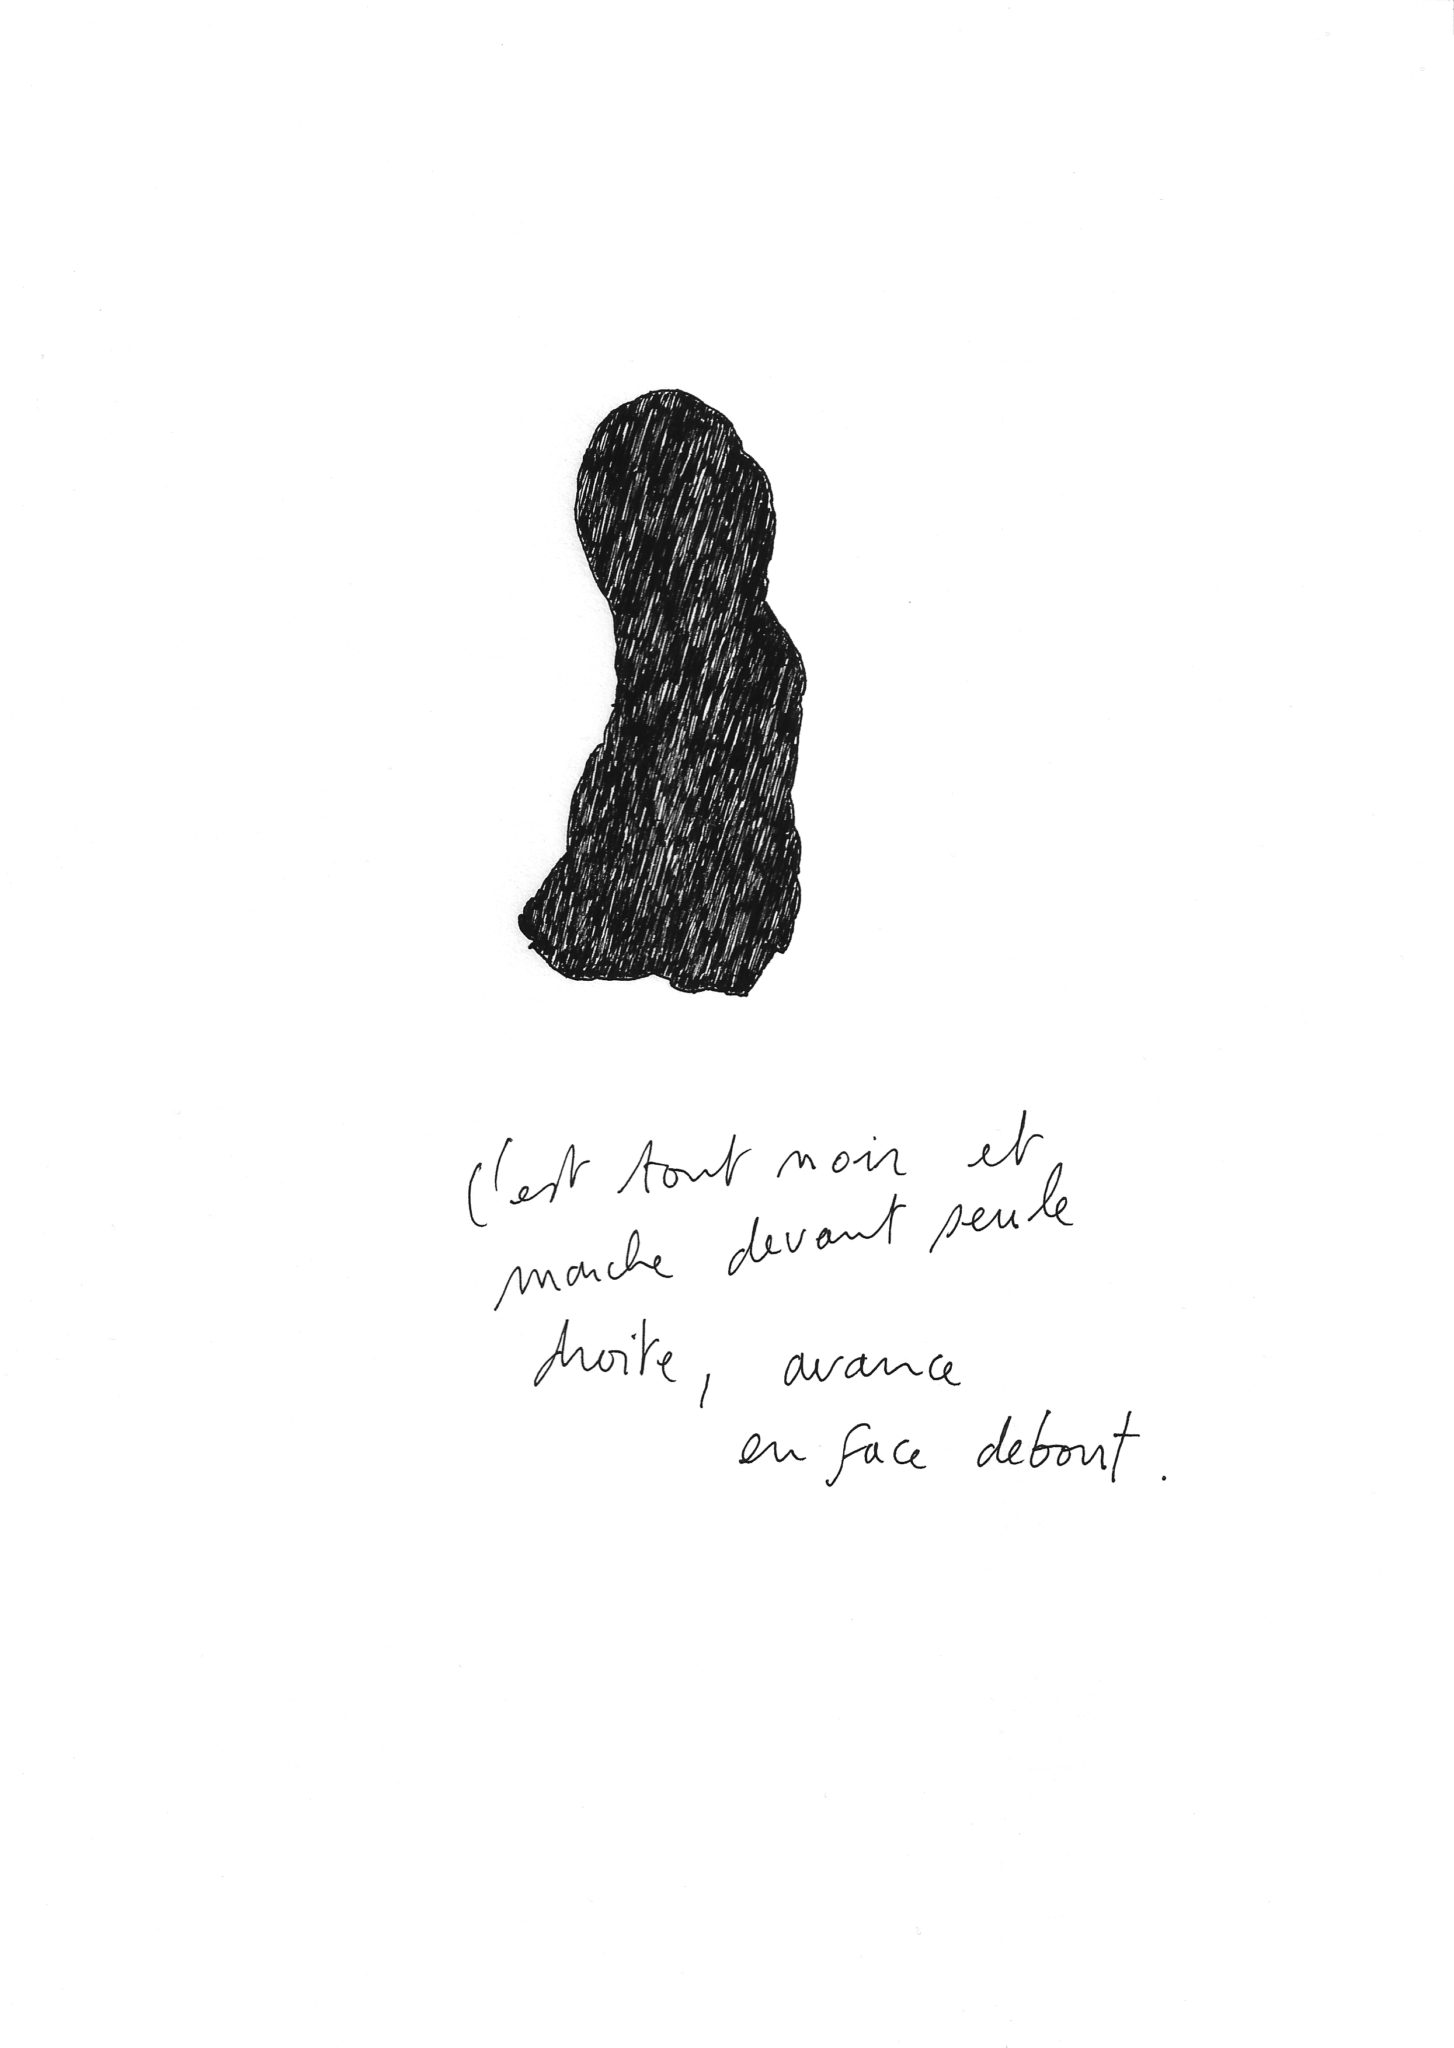 C'est tout noir et
marche devant seule
droite, avance
en face debout.